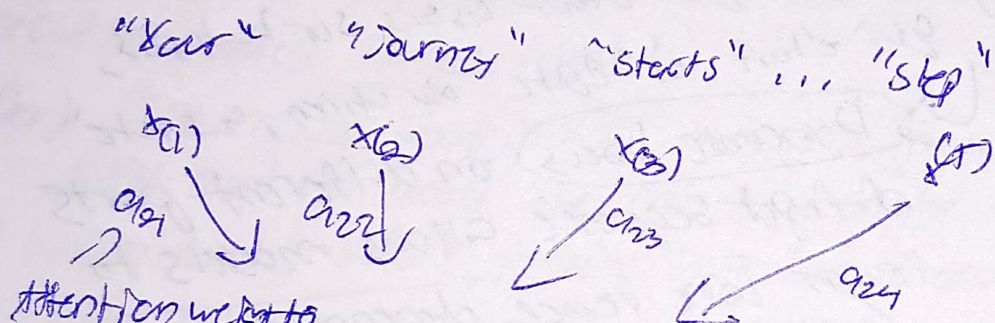 "Your" "Journey" "Starts" ... "Step"
x(1) x(2) x(3) x(T)
a21 a22 a23 a24
Attention weights